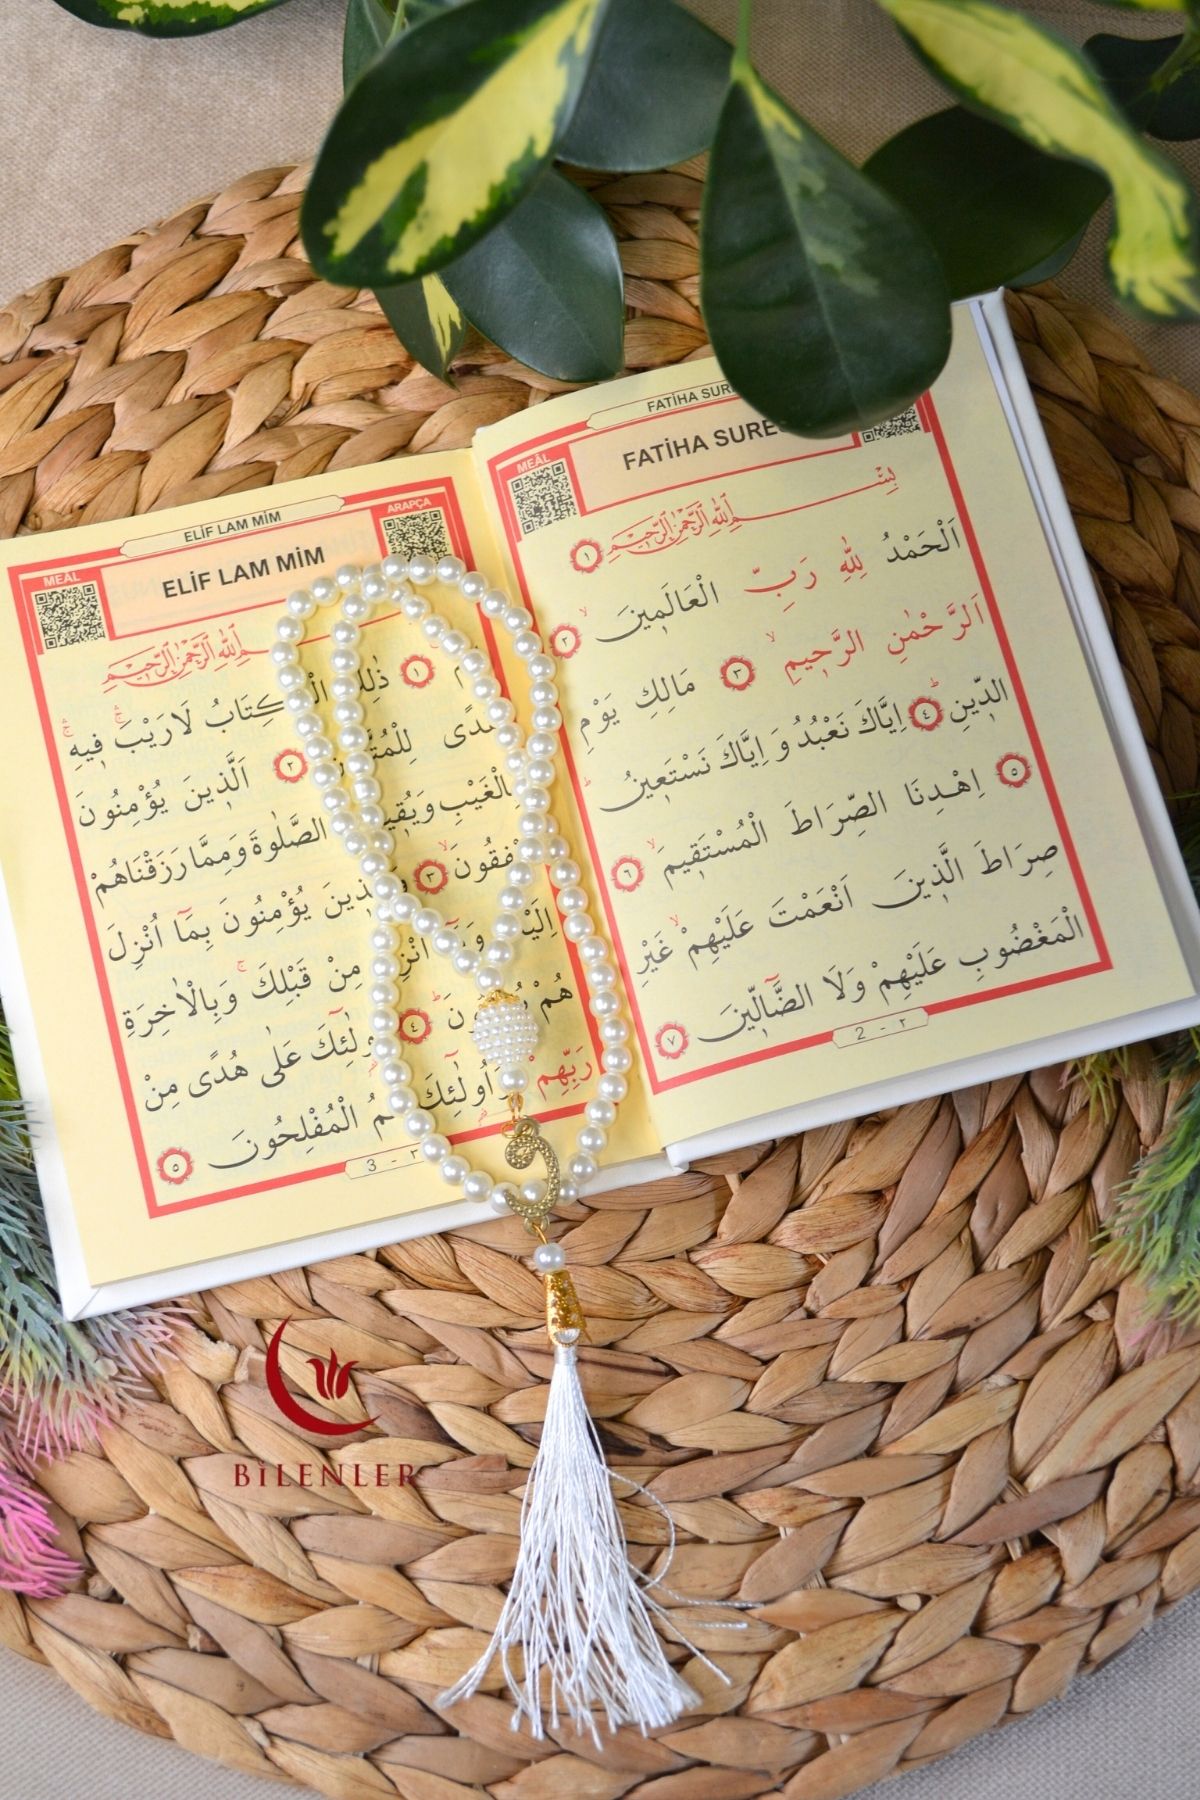 FATİHA SURE
FATİHA SURE
MEÂL
بِسْــــــمِ اللّٰهِ الرَّحْمٰنِ الرَّحِيمِ ١
اَلْحَمْدُ لِلّٰهِ رَبِّ الْعَالَمٖينَۙ ٢
اَلرَّحْمٰنِ الرَّحٖيمِۙ ٣ مَالِكِ يَوْمِ
الدّٖينِؕ ٤ اِيَّاكَ نَعْبُدُ وَاِيَّاكَ نَسْتَعٖينُؕ
٥ اِهْدِنَا الصِّرَاطَ الْمُسْتَقٖيمَۙ ٦
صِرَاطَ الَّذٖينَ اَنْعَمْتَ عَلَيْهِمْۙ غَيْرِ
الْمَغْضُوبِ عَلَيْهِمْ وَلَا الضَّٓالّٖينَ ٧
2 - ٢
ELİF LAM MİM
ELİF LAM MİM
MEÂL
ARAPÇA
بِسْمِ اللّٰهِ الرَّحْمٰنِ الرَّحِيمِ
١ ذٰلِكَ الْكِتَابُ لَا رَيْبَۚۛ فٖيهِۚۛ
هُدًى لِلْمُتَّقٖينَ ٢ اَلَّذٖينَ يُؤْمِنُونَ
بِالْغَيْبِ وَيُقٖيمُونَ الصَّلٰوةَ وَمِمَّا رَزَقْنَاهُمْ
يُنْفِقُونَۙ ٣ وَالَّذٖينَ يُؤْمِنُونَ بِمَٓا اُنْزِلَ
اِلَيْكَ وَمَٓا اُنْزِلَ مِنْ قَبْلِكَۚ وَبِالْاٰخِرَةِ
هُمْ يُوقِنُونَؕ ٤ اُولٰٓئِكَ عَلٰى هُدًى مِنْ
رَبِّهِمْ وَاُولٰٓئِكَ هُمُ الْمُفْلِحُونَ ٥
3 - ٣
BİLENLER